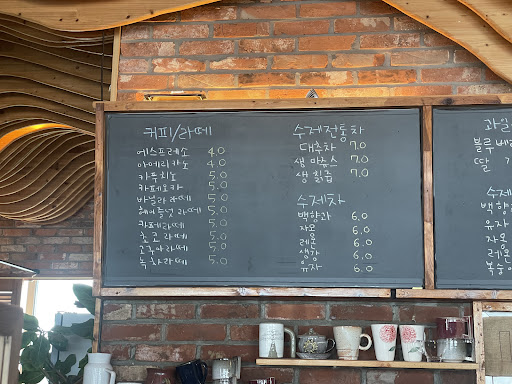 커피/라떼
에스프레소 4.0
아메리카노 4.0
카푸치노 5.0
카페모카 5.0
바닐라 라떼 5.0
헤이즐넛 라떼 5.0
카페라떼 5.0
초코라떼 5.0
고구마라떼 5.0
녹차라떼 5.0
수제전통차
대추차 7.0
생 마쥬스 7.0
생 칡즙 7.0
수제차
백향과 6.0
자몽 6.0
레몬 6.0
생강 6.0
유자 6.0
과일
블루베
딸
수제
백향
유자
자몽
레몬
복숭